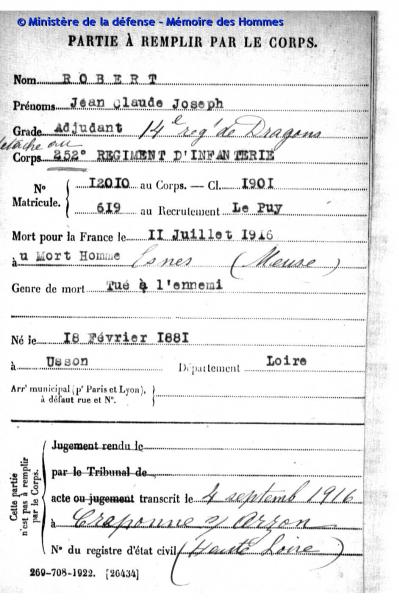 © Ministère de la défense - Mémoire des Hommes
PARTIE À REMPLIR PAR LE CORPS.
Nom ROBERT
Prénoms Jean Claude Joseph
Grade Adjudant 14e reg' de Dragons
détaché au
Corps 252° REGIMENT D'INFANTERIE
N° Matricule. { 12010 au Corps. — Cl. 1901
619 au Recrutement Le Puy
Mort pour la France le II Juillet 1916
à u Mort Homme Esnes (Meuse)
Genre de mort Tué à l'ennemi
Né le I8 Février I88I
à Usson Département Loire
Arr' municipal (p' Paris et Lyon), à défaut rue et N°. }
Cette partie n'est pas à remplir par le Corps. {
Jugement rendu le
par le Tribunal de
acte ou jugement transcrit le 4 septemb 1916
à Craponne s/ Arzon
N° du registre d'état civil (Haute Loire)
269-708-1922. [26434]